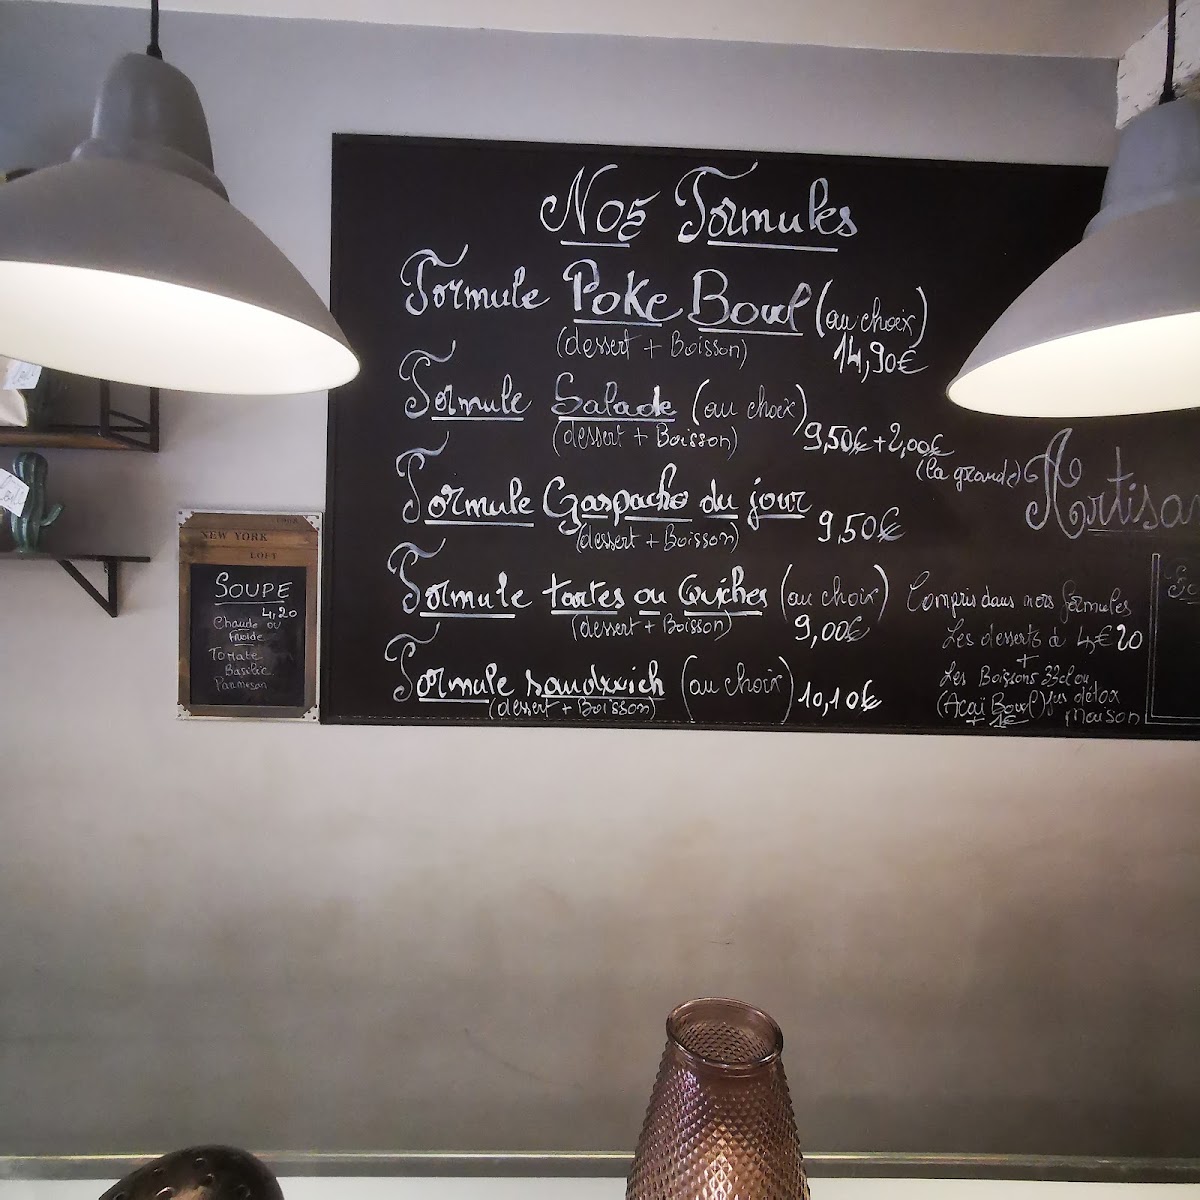 Nos Formules
Formule Poke Bowl (au choix)
(dessert + Boisson)
14,90€
Formule Salade (au choix)
(dessert + Boisson)
9,50€ + 2,00€
(la grande)
Formule Gaspacho du jour
(dessert + Boisson)
9,50€
Formule tartes ou Quiches (au choix)
(dessert + Boisson)
9,00€
Formule sandwich (au choix) 10,10€
(dessert + Boisson)
Artisa
Compris dans nos formules
Les desserts à 4,€20
+
Les Boissons 33cl ou
(Acaï Bowl) jus détox
+ 1€ maison
NEW YORK
LOFT
SOUPE
4,20
Chaude ou
froide
Tomate
Basilic
Parmesan